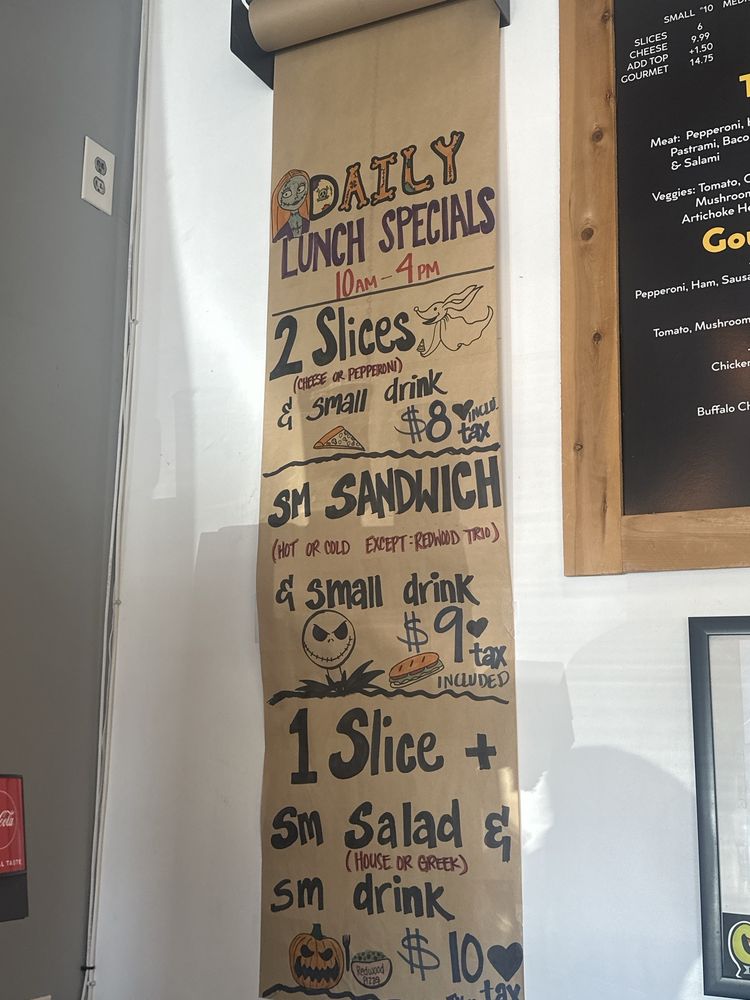 DAILY
LUNCH SPECIALS
10AM - 4PM
2 Slices
(CHEESE OR PEPPERONI)
& small drink
$8 INCLU.
tax
SM SANDWICH
(HOT OR COLD EXCEPT: REDWOOD TRIO)
& small drink
$9
tax
INCLUDED
1 Slice +
Sm Salad &
(HOUSE OR GREEK)
sm drink
Redwood
Pizza
$10
tax
SMALL "10
SLICES 6
CHEESE 9.99
ADD TOP +1.50
GOURMET 14.75
Meat: Pepperoni,
Pastrami,
& Salami
Veggies: Tomato,
Mushroom
Artichoke
Pepperoni, Ham,
Tomato, Mushroom
Chicken
Buffalo